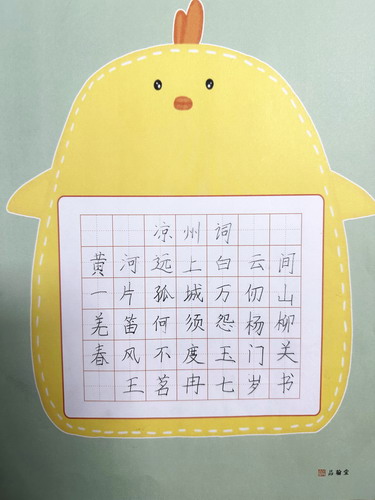 凉州词
黄河远上白云间
一片孤城万仞山
羌笛何须怨杨柳
春风不度玉门关
王茗冉七岁书
品翰堂